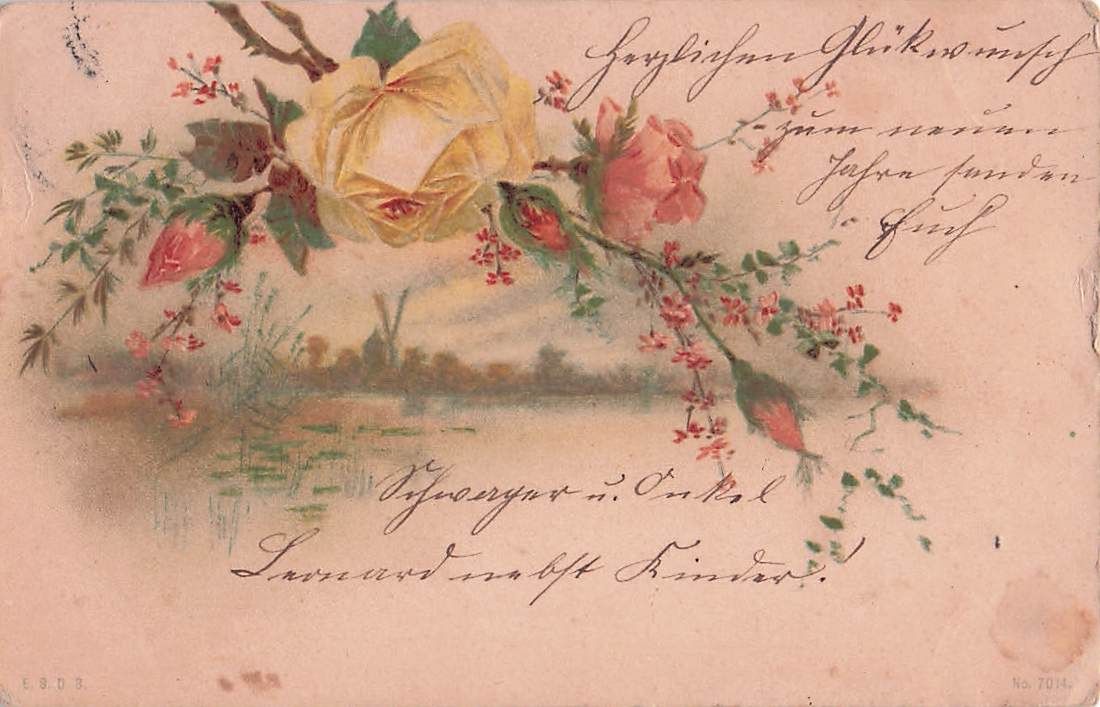 Herzlichen Glükwunsch
zum neuen
Jahre senden
Euch
Schwager u. Onkel
Leonard nebst Kinder!
E. S. D. B.
No. 7014.